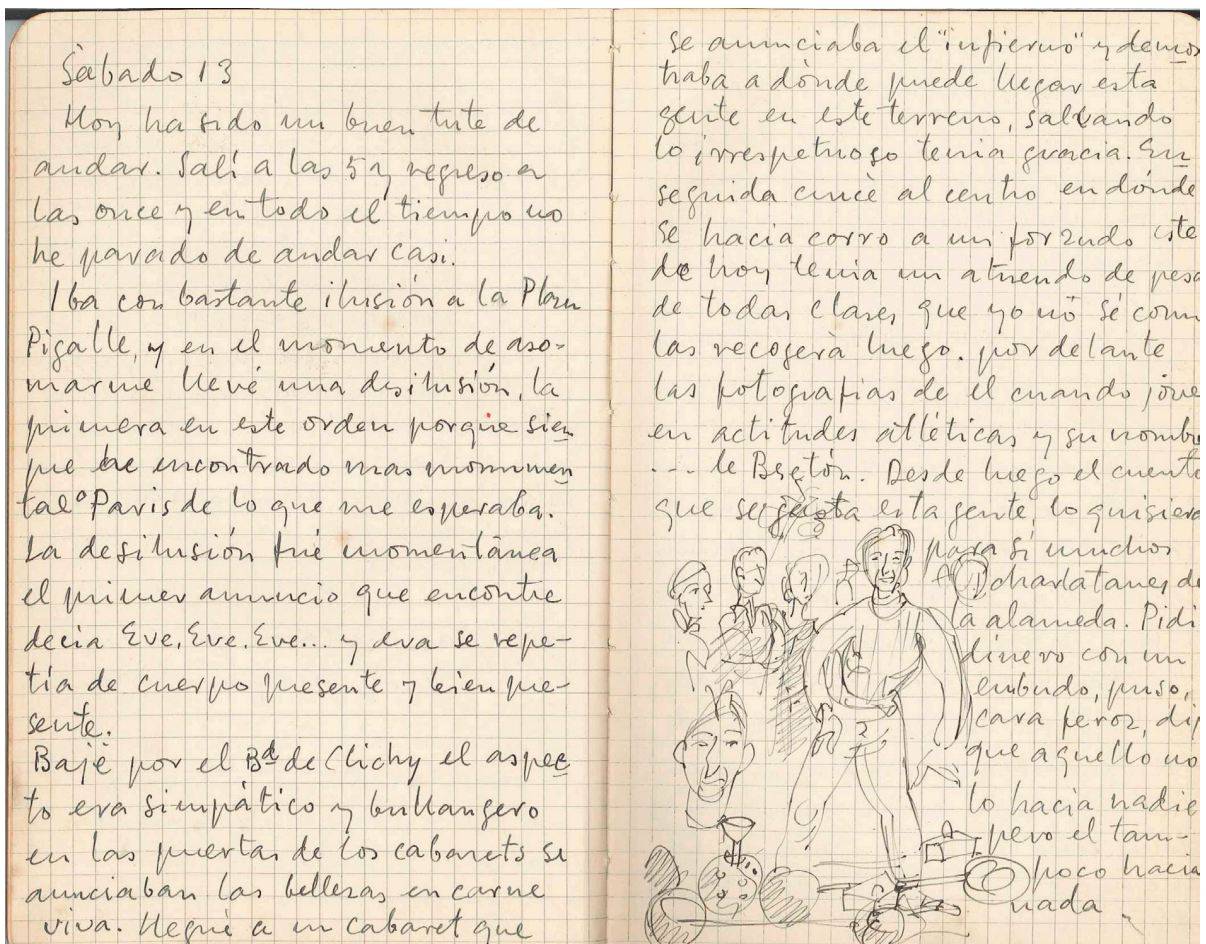 Sàbado 13
Hoy ha sido un buen tute de
andar. Salí a las 5 y regreso a
las once y en todo el tiempo no
he parado de andar casi.
Iba con bastante ilusión a la Plaza
Pigalle, y en el momento de aso-
marme llevé una desilusión, la
primera en este orden porque siem
pre he encontrado mas monumen
tal a Paris de lo que me esperaba.
La desilusión fué momentànea
el primer anuncio que encontre
decia Eve, Eve. Eve... y eva se repe-
tía de cuerpo presente y bien pre-
sente.
Bajé por el Bd de Clichy el aspec
to era simpàtico y bullangero
en las puertas de los cabarets se
anunciaban las bellezas en carne
viva. Llegué a un cabaret que
se anunciaba el "infierno" y demos
traba a dònde puede llegar esta
gente en este terreno, salvando
lo irrespetuoso tenia gracia. En
seguida crucè al centro en dónde
se hacia corro a un forzudo este
de hoy tenia un atuendo de pesa
de todas clases que yo nó sé como
las recogerà luego. por delante
las fotografias de el cuando jove
en actitudes atléticas y su nombre
... le Bretón. Desde luego el cuento
que se gasta esta gente, lo quisiera
para sí muchos
charlatanes de
la alameda. Pidi
dinero con un
embudo, puso,
cara feroz, dij
que aquello no
lo hacia nadie
pero el tam-
poco hacia
nada